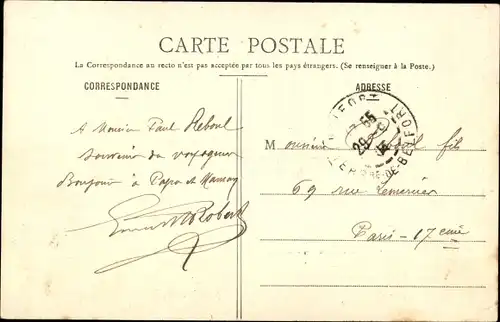 CARTE POSTALE
La Correspondance au recto n'est pas acceptée par tous les pays étrangers. (Se renseigner à la Poste.)
CORRESPONDANCE
A Monsieur Paul Reboul
souvenir du voyageur
Bonjour à Papa et Maman
Robert
ADRESSE
BELFORT
DE-BELFORT
Monsieur Reboul fils
69 rue Lemercier
Paris - 17eme